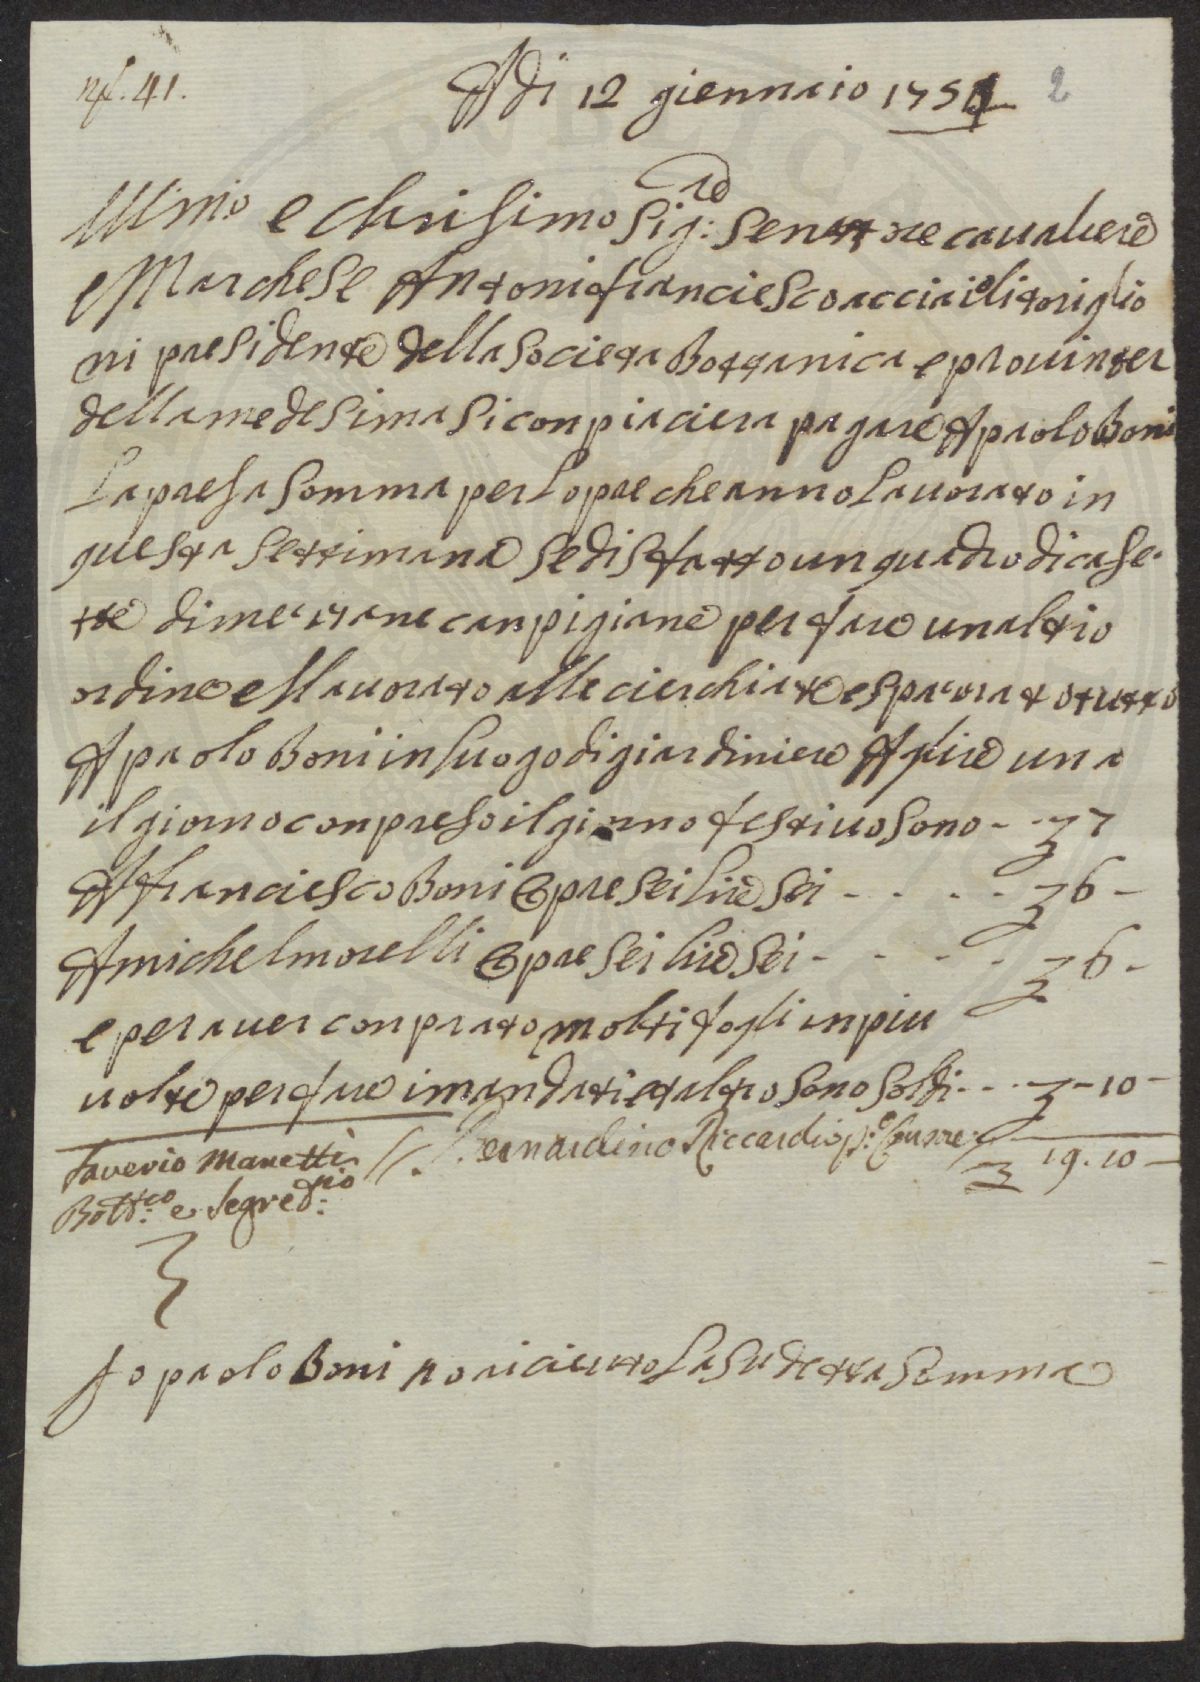 nº. 41.
Adi 12 giennaio 1751 2
Illmo e chrisimo Sig:re Senattore cavaliere
e Marchese Antonifranciesco acciaioli toriglio
ni presidente della Societa Bottanica e provinter
della medesima si conpiaciera pagare A paolo Boni
La presa Somma per L opre che anno Lavorato in
questa Settimana sedis fatto un quadro di case
tte di me canpigiane per fare unaltro
ordine e llavorato alle cierchiate e tutto
A paolo Boni in luogo di giardiniere A lire una
il giorno conpreso il giorno festivo sono - - 7
A franciesco Boni Opre sei lire sei - - - - 6 -
A michel morelli Opre sei lire sei - - - - 6 -
e per aver conprato molti fogli in piu
volte per fare i mandati et altro sono soldi - - - 10 -
Saverio Manetti Bernardino Riccardi 19. 10 -
Bott:co e Segred:rio
Io paolo Boni o riciuto La su detta Somma